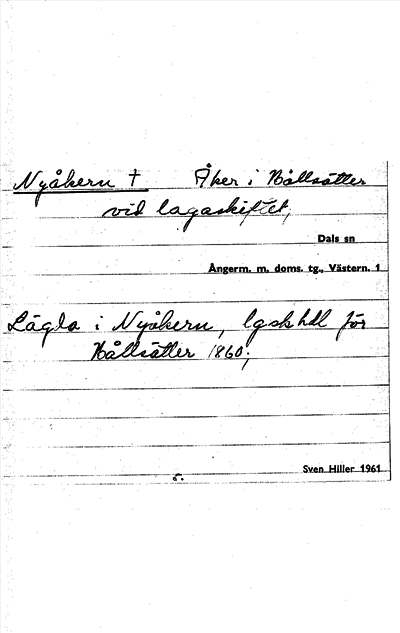 Nyåkern † Åker i Hållsätter
vid lagaskiftet;
Dals sn
Ångerm. m. doms. tg., Västern. 1
Lägda i Nyåkern, lgskhdl för
Hållsätter 1860;
Sven Hiller 1961